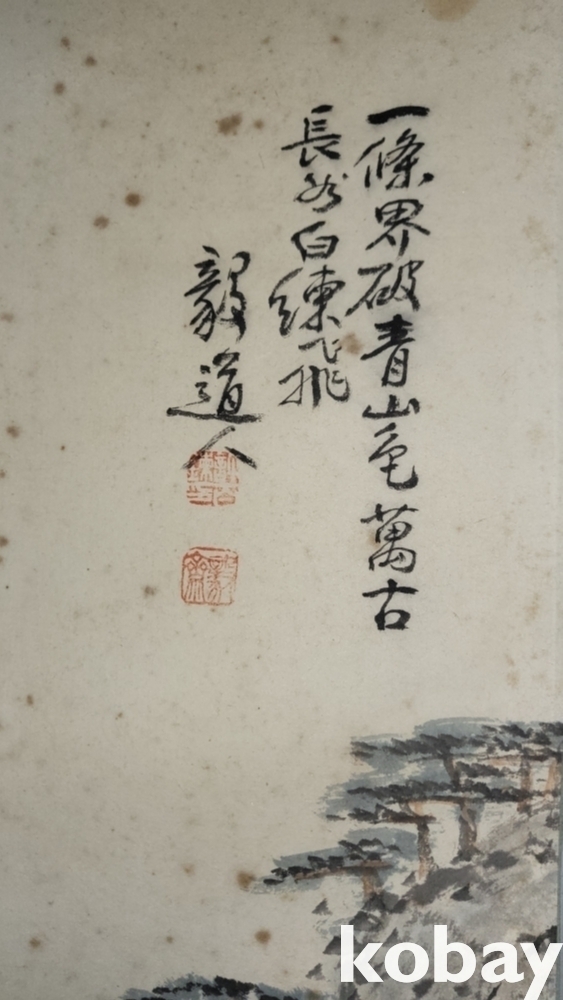 一條界破青山色萬古
長如白練飛
毅道人
kobay